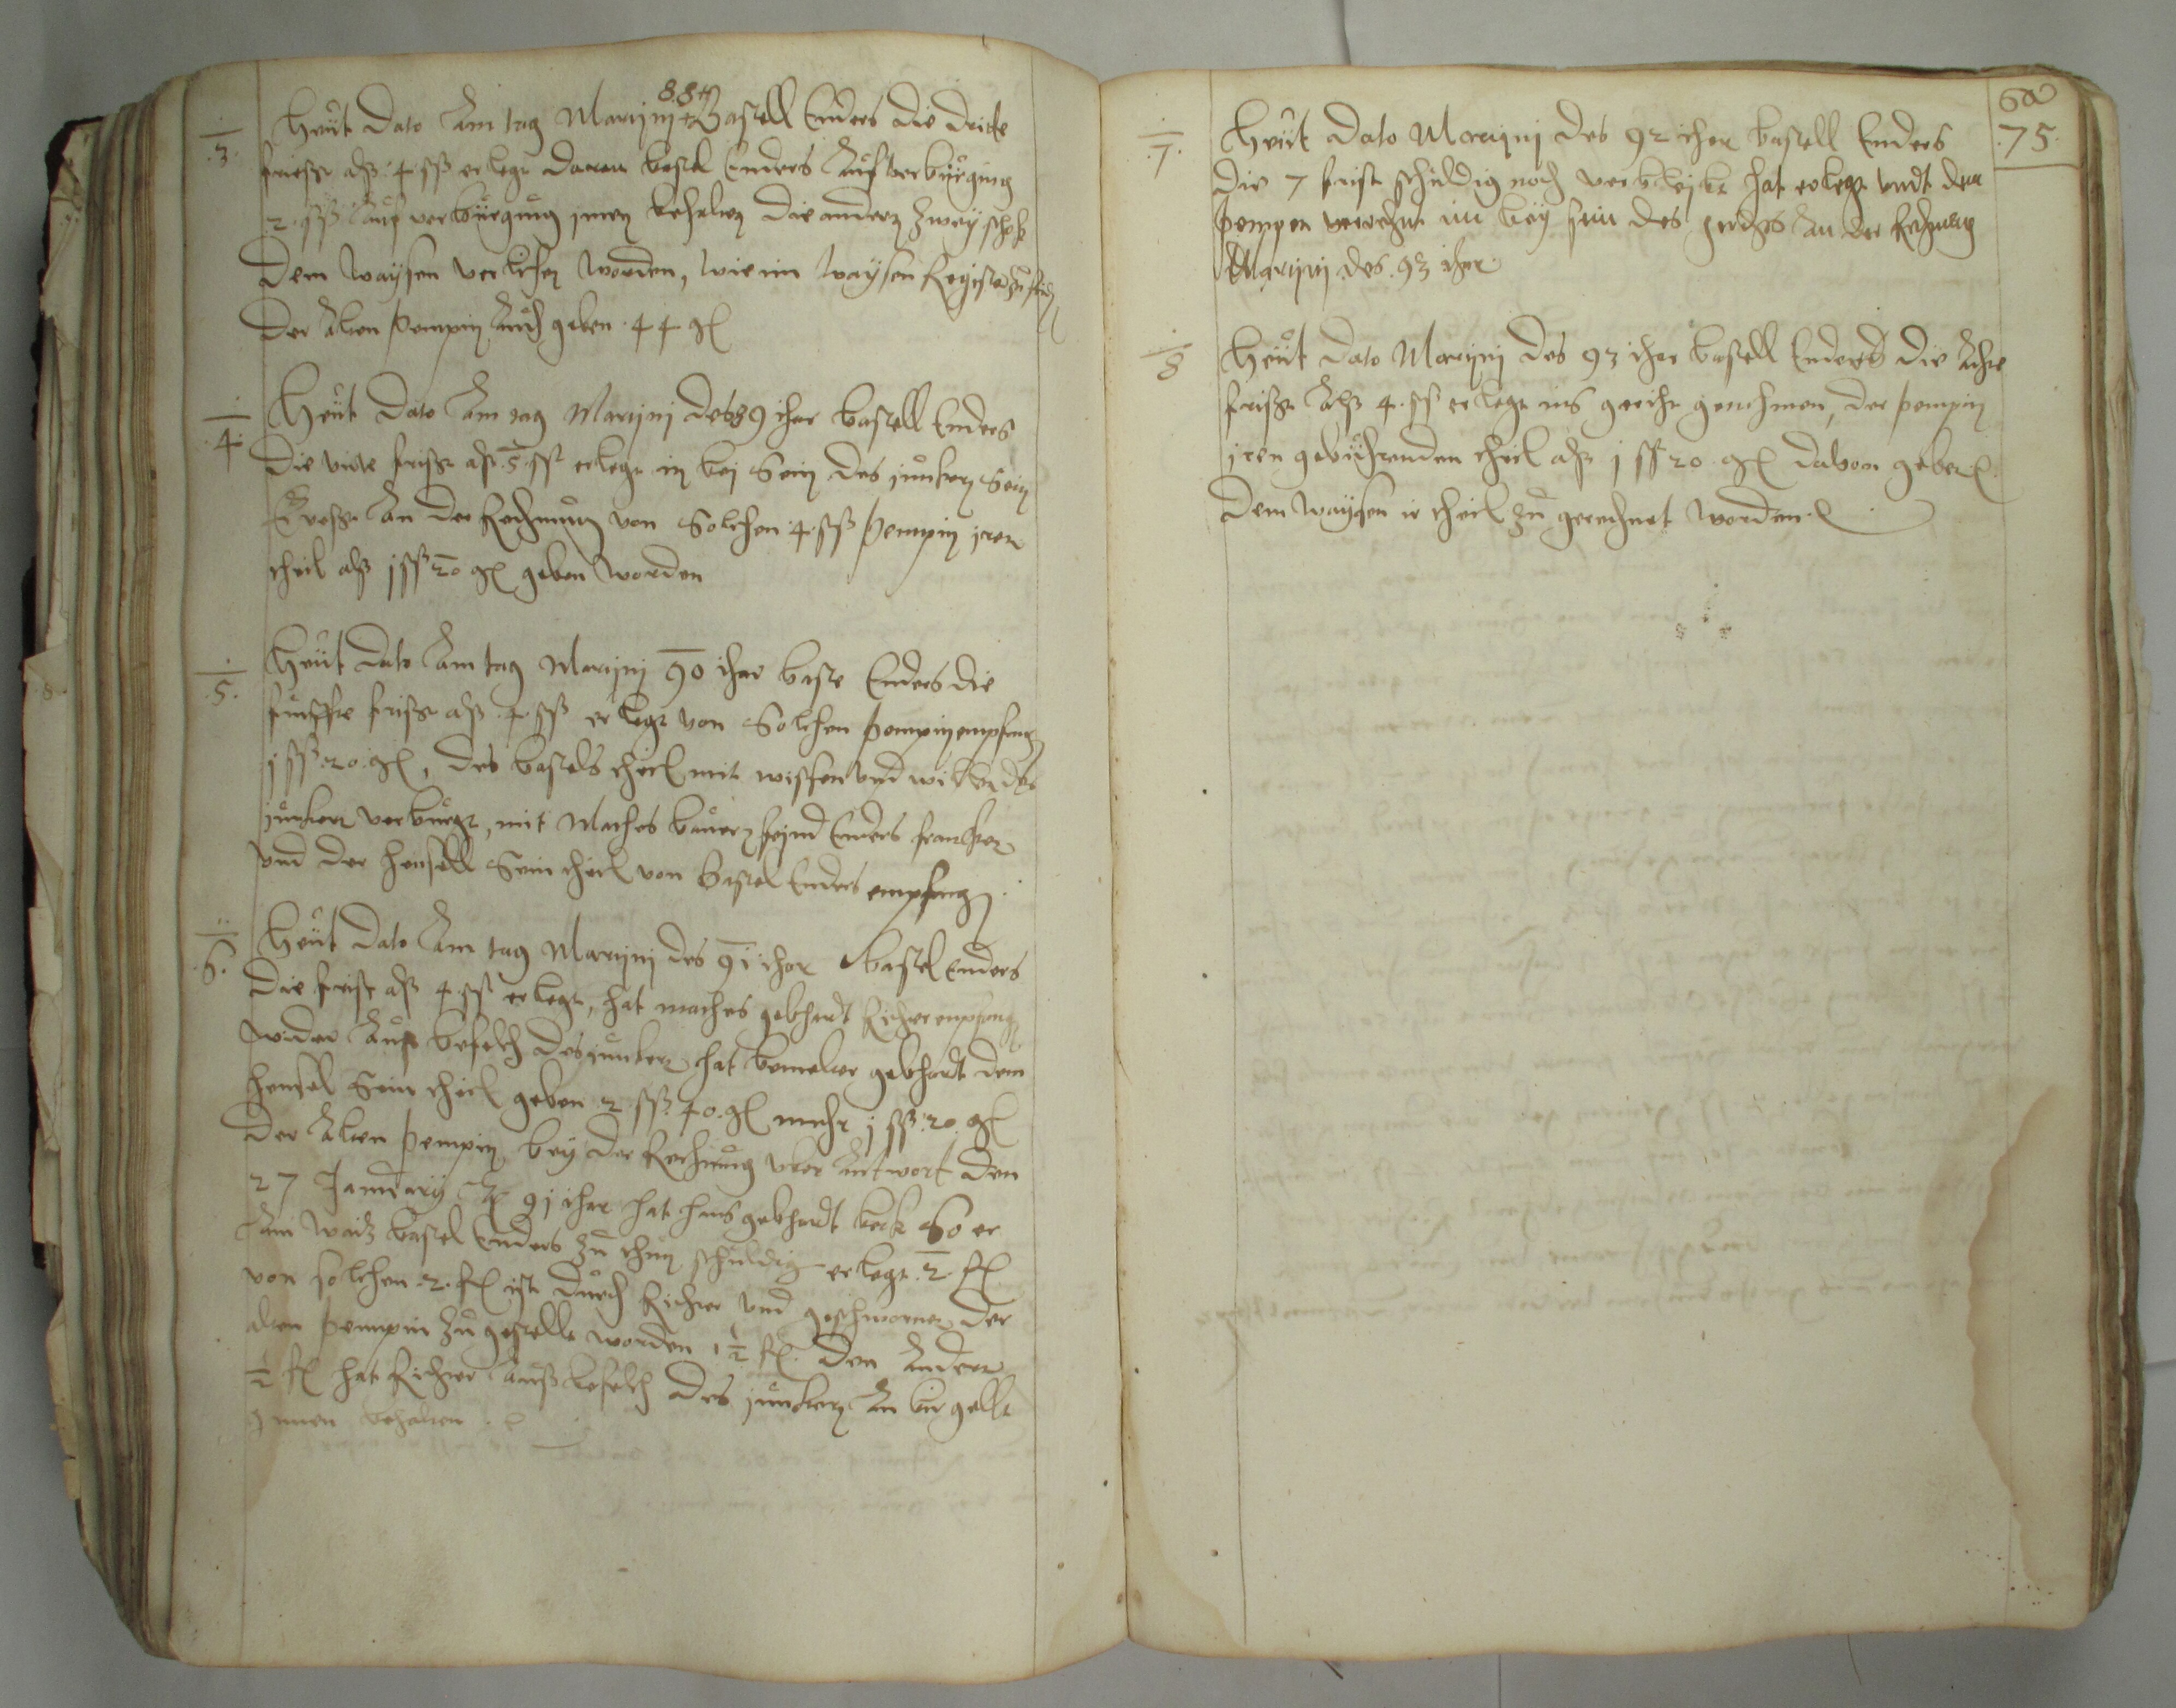 88
.3.
Heut dato Am tag Martijnj Bastell Enders die dritte
friest alß .4. ßß erlegt daran bastel Enders Auf verburgung
2 ßß Auf verburgung jnnen behalten die andern zweij schok
dem waijsen verlihen worden, wie im waijsen Register zu
der Alten Pempin Auch geben .44 gl
.4.
Heut dato Am tag Martijnj des 89 ihar bastell Enders
die virte frist alß .5. ßß erlegt in beij Sein des junkern Sein
An der Rechnung von Solchen .4. ßß Pempin jren
theil alß j ßß 20 gl geben worden
.5.
Heut dato Am tag Martijnj 90 ihar baste Enders die
funffte frist alß .4. ßß erlegt von Solchen Pempin empfangen
j ßß .20. gl, des bastels theil mit wissen und willen des
junkern verburgt, mit Mathes baüern feind Enders franken
und der hensell Sein theil von bastel Enders empfangen.
.6.
Heut dato Am tag Martijnj des 91 ihar bastel Enders
die frist alß 4 ßß erlegt, hat mathes gebhardt Richter empfangen
wider Auß befelch des junkern hat bemelter gebhardt dem
hensel Sein theil geben 2 ßß 40 gl mehr j ßß .20. gl
der Alten Pempin beij der Rechnung uber Antwort den
27 Januarij 91 ihar hat hans gebhardt beck So er
bastel Enders zu thun schuldig erlegt .2. fl
von solchen .2. fl ist durch Richter und geschwornen der
alten Pempin zu gestelt worden 1 ½ fl den Andern
½ fl hat Richter Auß befelch des junkern
jnnen behalten.
60
75.
.7.
Heut dato Martijnj des 92 ihar bastell Enders
die 7 frist schuldig noch verbleibt hat erlegt undt den
Pempen im beij sein des gerichts An der Rechnung
Martijnj des .93 ihar
8
Heut dato Martijnj des 93 ihar bastell Enders die Achte
frist Alß 4. ßß erlegt ins gericht genohmen, der Pempin
jren gebührenden theil alß j ßß 20 gl davon geben
dem waijsen ir theil zu gerechnet worden.